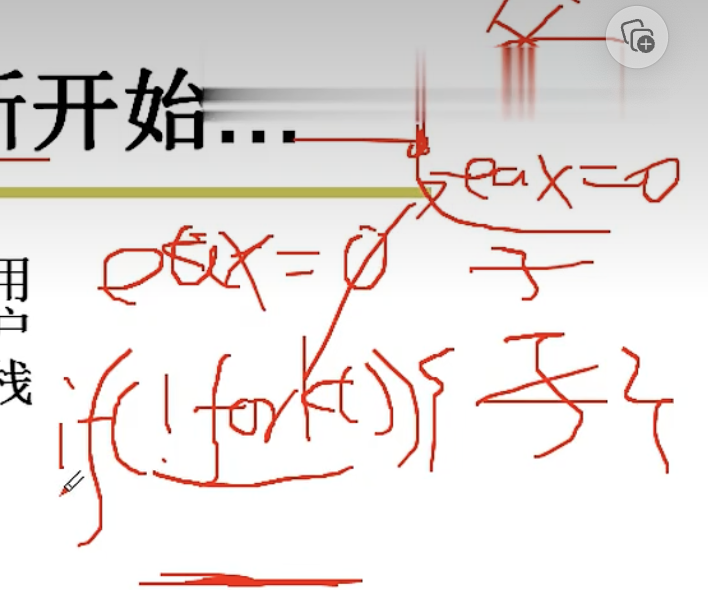 开始...
eax=0
eax=0
子
用
户
栈
if(!fork()){子}